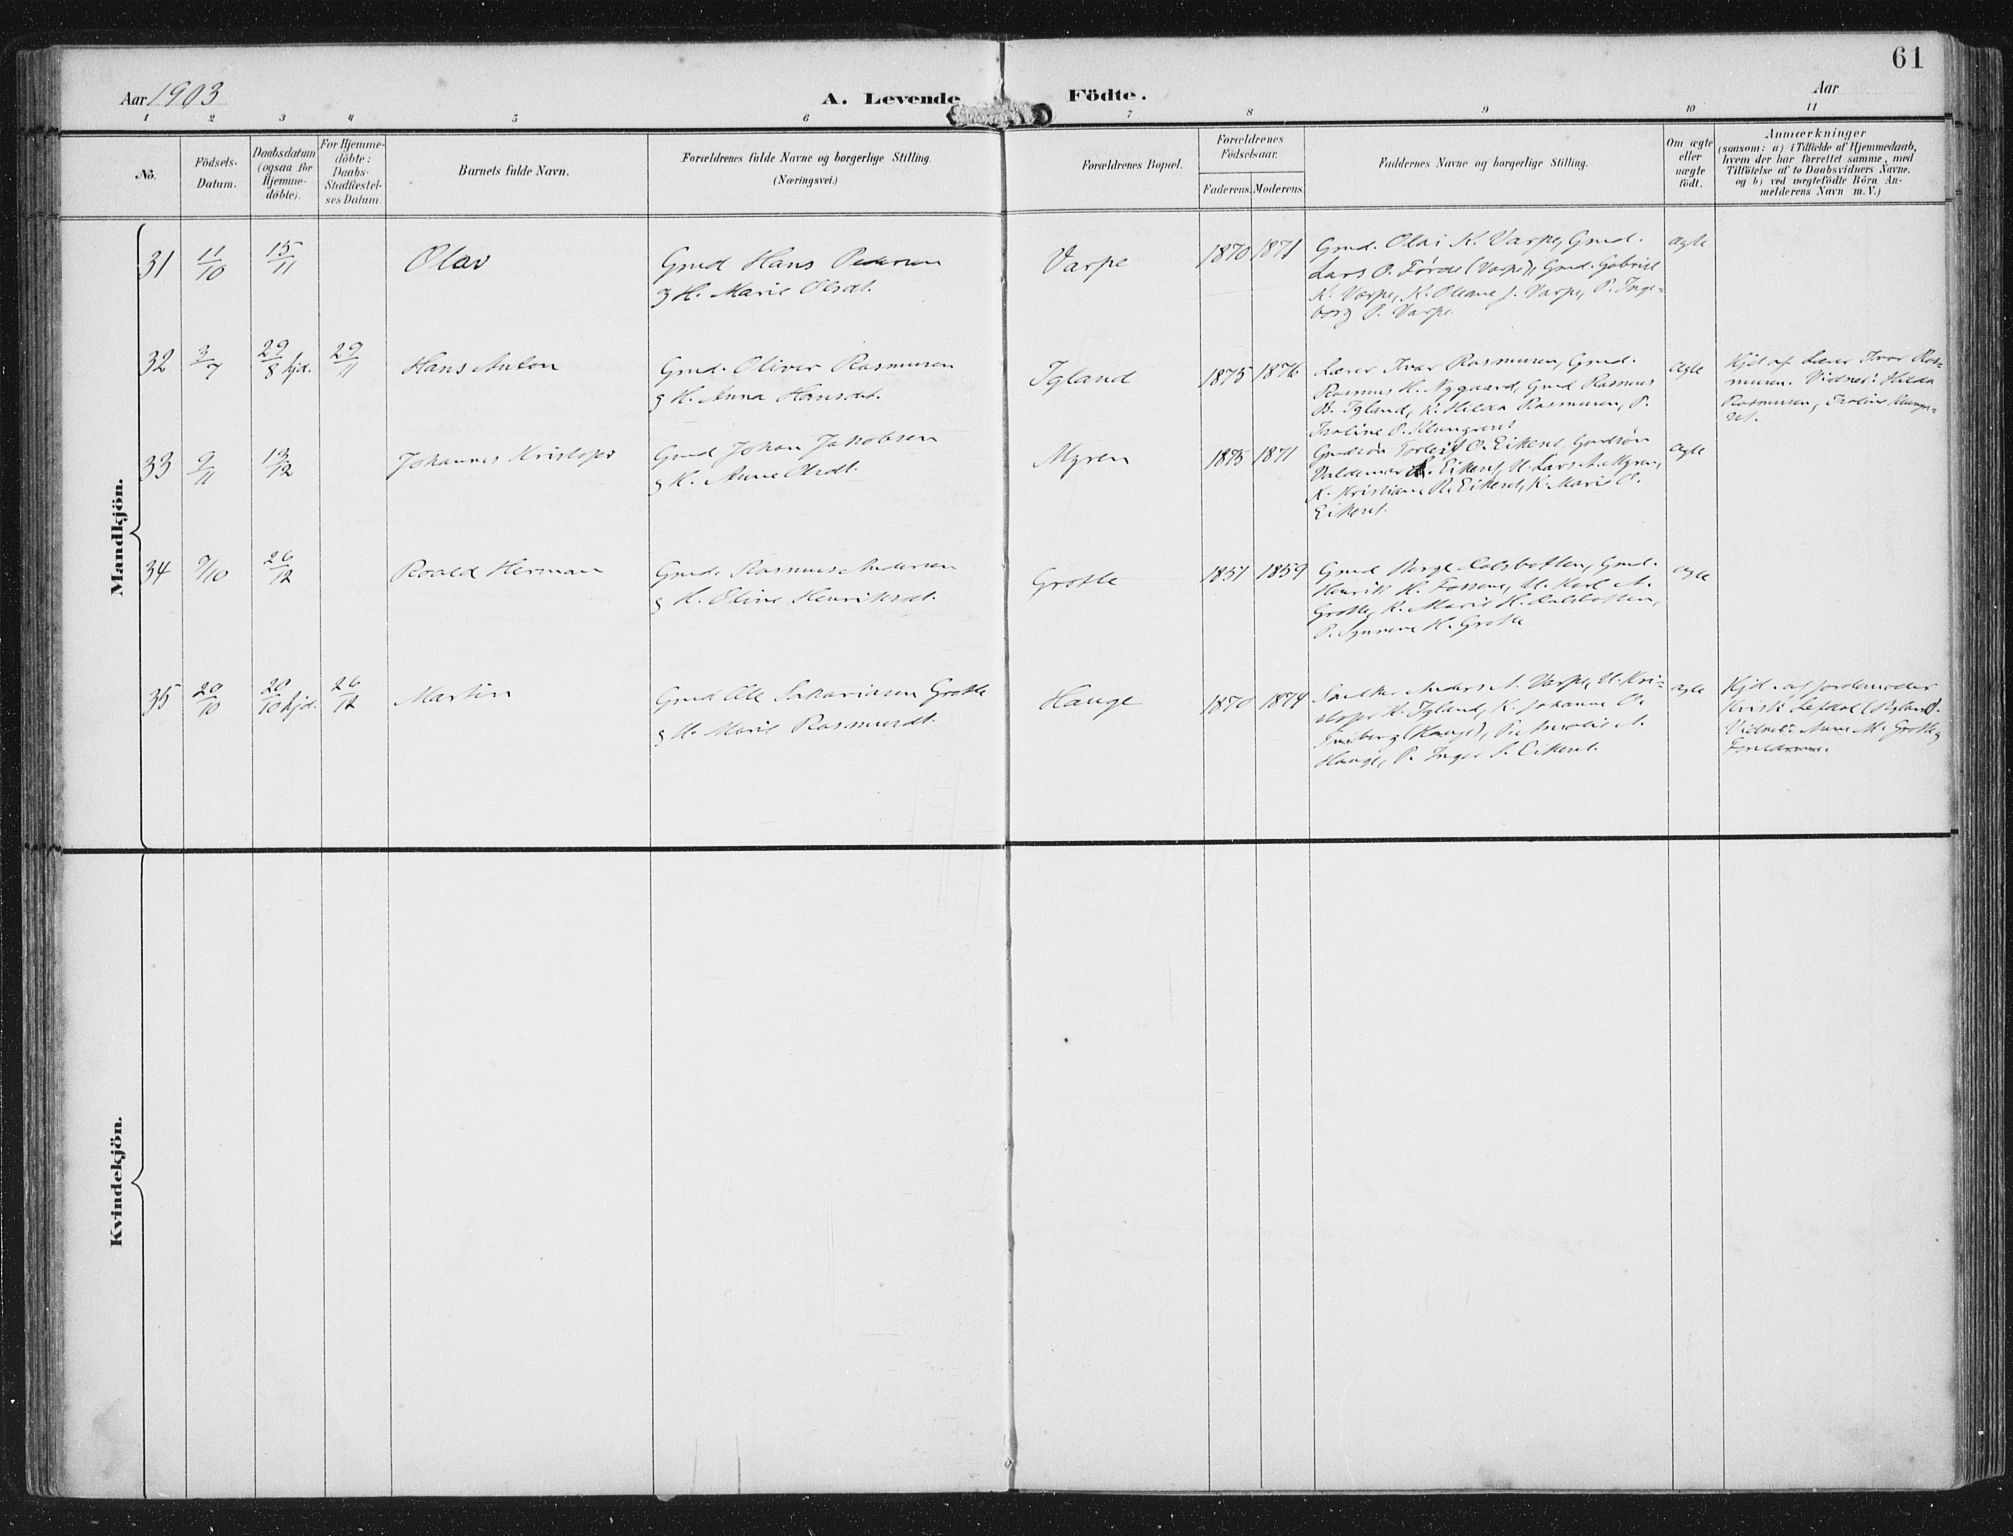 61
Aar 1903
A. Levende Födte.
Aar
1 2 3 4 5 6 7 8 9 10 11
No.
Födsels-
Datum.
Daabsdatum
(ogsaa for
Hjemme-
döbte).
For Hjemme-
döbte:
Daabs-
Stadfæstel-
ses Datum.
Barnets fulde Navn.
Forældrenes fulde Navne og borgerlige Stilling.
(Næringsvei.)
Forældrenes Bopæl.
Forældrenes
Födselsaar.
Faderens. Moderens.
Faddernes Navne og borgerlige Stilling.
Om ægte
eller
uægte
födt.
Anmærkninger
(saasom: a) i Tilfælde af Hjemmedaab,
hvem der har forrettet samme, med
Tilföielse af to Daabsvidners Navne,
og b) ved uægtefödte Börn An-
melderens Navn m. V.)
Mandkjön.
31 11/10 15/11 Olav
Gmd Hans Pedersen
og H. Marie Olsdt.
Varpe 1870 1871
Gmd. Olai K. Varpe, Gmd.
Lars O. Førde (Varpe), Gmd. Gabriel
K. Varpe, K. Oleane J. Varpe, P. Inge-
borg P. Varpe
ægte
32 3/7 29/8 hjd. 29/11 Hans Anton
Gmd. Oliver Rasmusen
og H. Anna Hansdt.
Igland 1875 1876
Lærer Ivar Rasmusen, Gmd.
Rasmus K. Nygaard, Gmd Rasmus
B. Igland, K. Hilda Rasmusen, P.
P. Klungreset
ægte
Hjd af Lærer Ivar Ras-
musen. Vidner: Hilda
Rasmusen,
33 9/11 13/12 Johannes Kristofer
Gmd Johan Jakobsen
og H. Anne Olsdt.
Myren 1875 1871
Gmdsøn Torleif O. Eikeset, Gmdsøn
Valdemar Eikeset, U. Lars A. Myren,
K. Kristiane R. Eikeset, K. Marie O.
Eikeset.
ægte
34 9/10 26/12 Roald Herman
Gmd. Rasmus Andersen
og H. Oline Henriksdt.
Grotle 1851 1859
Gmd Børge Gmd.
Henrik H. Fossene, U. Karl A.
Grotle, K. Marie H.
P. H. Grotle
ægte
35 20/10 20/10 hjd. 26/12 Martin
Gmd Ole Sakariasen Grotle
og H. Marie Rasmusdt.
Hauge 1870 1874
Anders A. Varpe, U. Kri-
stofer K. Igland, K. Johanne O.
(Hauge), P. A.
Hauge, P. Inger S. Eikeset.
ægte
Hjd. af Jordemoder
Kristi Lefdal (Igland).
Vidner: Anne M. Grotle og
Kvindekjön.